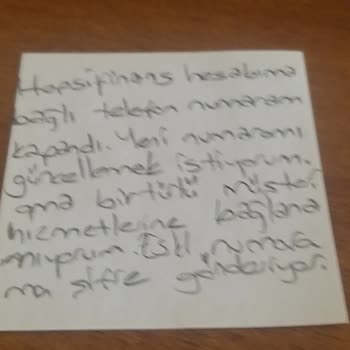 Hepsipinans hesabıma
bağlı telefon numaram
kapandı. Yeni numaramı
güncellemek istiyorum.
ama bir türlü müşteri
hizmetlerine bağlana
mıyorum. Eski numara
ma şifre gönderiyor.